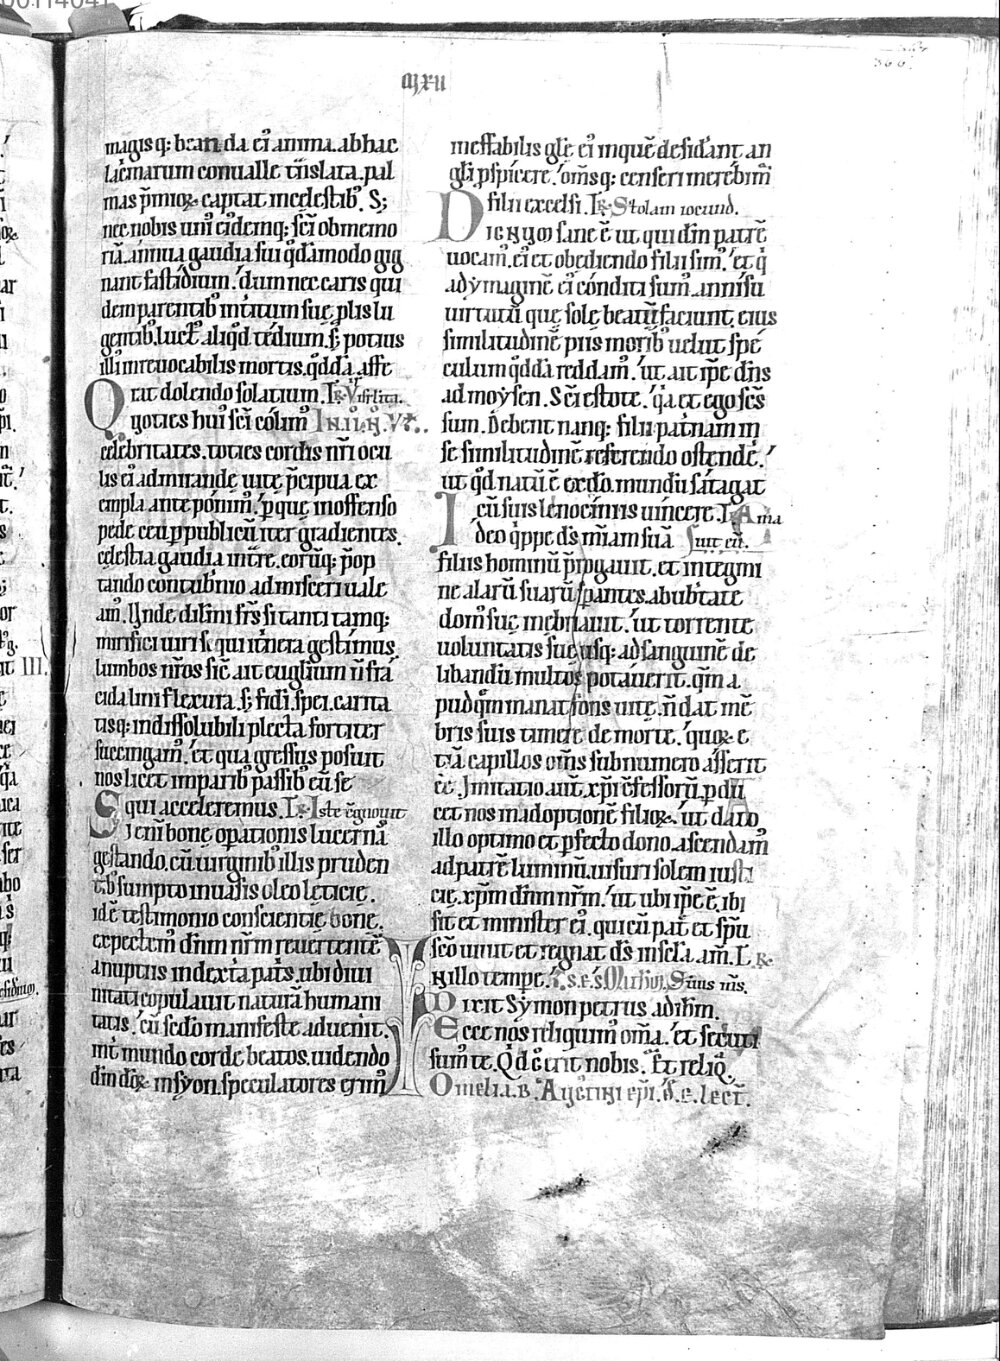 magisq; beanda ei᷒ anima. ab hac
lac̓marum conualle t̃nslata. pal
mas p̃mioꝝ captat in celestib᷒. S;
nec nobis uni᷒ ei᷒demq; sc̃i ob memo
riã. annua gaudia sui q̓dãmodo gig
nant fastidium. dum nec caris qui
dem parentib᷒ initium sue plis lu
gentib᷒. luct᷒ aliq̓d tedium. s; potius
illi inreuocabilis mortis. q̓ddã affe
rat dolendo solatium.
Quoties hui᷒ sc̃i colim᷒
celebritates. toties cordis nr̃i ocu
lis ei᷒ admirande uite p̃cipua ex
empla ante ponim᷒. p̱ que inoffenso
pede ceu p̱ publicũ iter gradientes.
celestia gaudia int̃re. eorũq; p̃op
tando contub̓nio ad misceri uale
am᷒. Unde dilmi fr̃s si tanti tamq;
mirifici uiri seq̓ui itinera gestim᷒.
lumbos nr̃os sic̃ ait euglium ñ frã
cida lini flexura. s; fidi. spei. carita
tisq; indissolubili plecta fortiter
succingam᷒. et qua gressus posuit
nos licet imparib᷒ passib᷒ eũ se
qui acceleremus. Iste cognouit
Si eni᷒ bone opationis lucernã
gestando. cũ uirginib᷒ illis pruden
tib᷒ sumpto in uasis oleo leticie.
id ẽ testimonio conscientie bone.
expectem᷒ dñm nr̃m reuertentẽ
a nuptiis in dext̃a pat̃s. ubi diui
nitati copulauit naturã humani
tatis. cũ sc̃do manifeste aduenit.
nit̃ mundo corde beatos. uidendo
din dõꝝ in syon. speculatores erim᷒
cxxii
ineffabilis gl̃e ei᷒ in quẽ desid̃ant an
gli p̱spicere. om̃sq; censeri merebim᷒
filii excelsi. Stolam iocund.
Dignum sane ẽ ut qui dñm patrẽ
uocam᷒. ei᷒ et obediendo filii sim᷒. et q̓
ad ymaginẽ ei᷒ conditi sum᷒. annisu
uirtutũ que sole beatũ faciunt. eius
similitudinẽ piis morib᷒ uelut spe
culum q̓ddã reddam᷒. ut ait ip̃e dñs
ad moysen. Sc̃i estote. q̓a et ego sc̃s
sum. Debent nanq; filii patnam in
se similitudinẽ referendo ostendẽ.
ut q̓d natũ ẽ ex dõ. mundũ satagat
cũ suis lenociniis uincere. Ama
Ideo q̓ppe ds̃ mi᷒am suã uit eũ.
filiis hominũ p̃rogauit. et in tegmi
ne alarũ suarũ sp̱antes. ab ub̓tate
dom᷒ sue inebriauit. ut torrente
uoluntatis sue usq; ad sanguinẽ de
libandũ multos potauerit. q̃m a
pud q̃m manat fons uite. ñ dat mẽ
bris suis timere de morte. quoꝝ e
tiã capillos om̃s sub numero asserit
ẽẽ. Imitatio aut̃ xp̃i c̃fessorũ p̱du
cet nos in adoptionẽ filioꝝ. ut dato
illo optimo et p̱fecto dono ascendam᷒
ad patrẽ luminũ. uisuri solem iusti
cie. xp̃m dñm nr̃m. ut ubi ip̃e ẽ. ibi
sit et minister ei᷒. qui cũ pat̃ et sp̃u
sc̃o uiuit et regnat ds̃ in sc̃la. am̃.
In illo tempe.
Dixit Symon petrus ad ih̃m.
Ecce nos reliquim᷒ om̃a. et secuti
sum᷒ te. Q̓d ẽ erit nobis. Et reliq̓.
Omelia. B. Augustini ep̃i. lect̃.